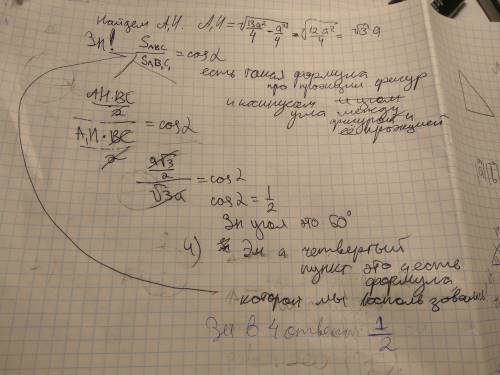 Найдем A₁H. A₁H = √(13a²/4 - a²/4) = √(12a²/4) = √3 a
Зн! S_ABC / S_A₁B₁C₁ = cos α
есть такая формула
про проэкции фигур
и косинусом и угол
угла между
фигурой и
её проэкцией
(AH·BC/2) / (A₁H·BC/2) = cos α
(a√3/2) / (√3a) = cos α
cos α = 1/2
Зн угол это 60°
4) Зн а четвертый
пункт это и есть
формула
которой мы воспользовались!
Зн в 4 ответ 1/2